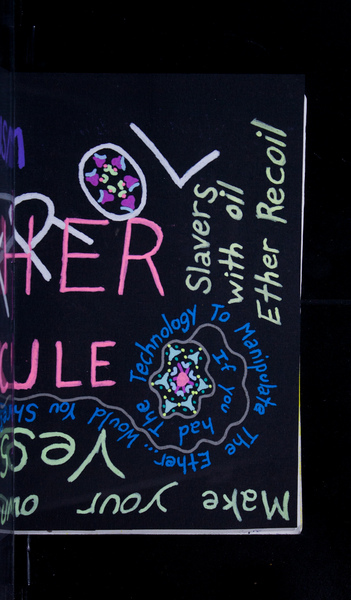 ROL
HER
CULE
Slavers
with oil
Ether Recoil
If you had The Technology To Manipulate The Ether...Would You
Yes
Make your